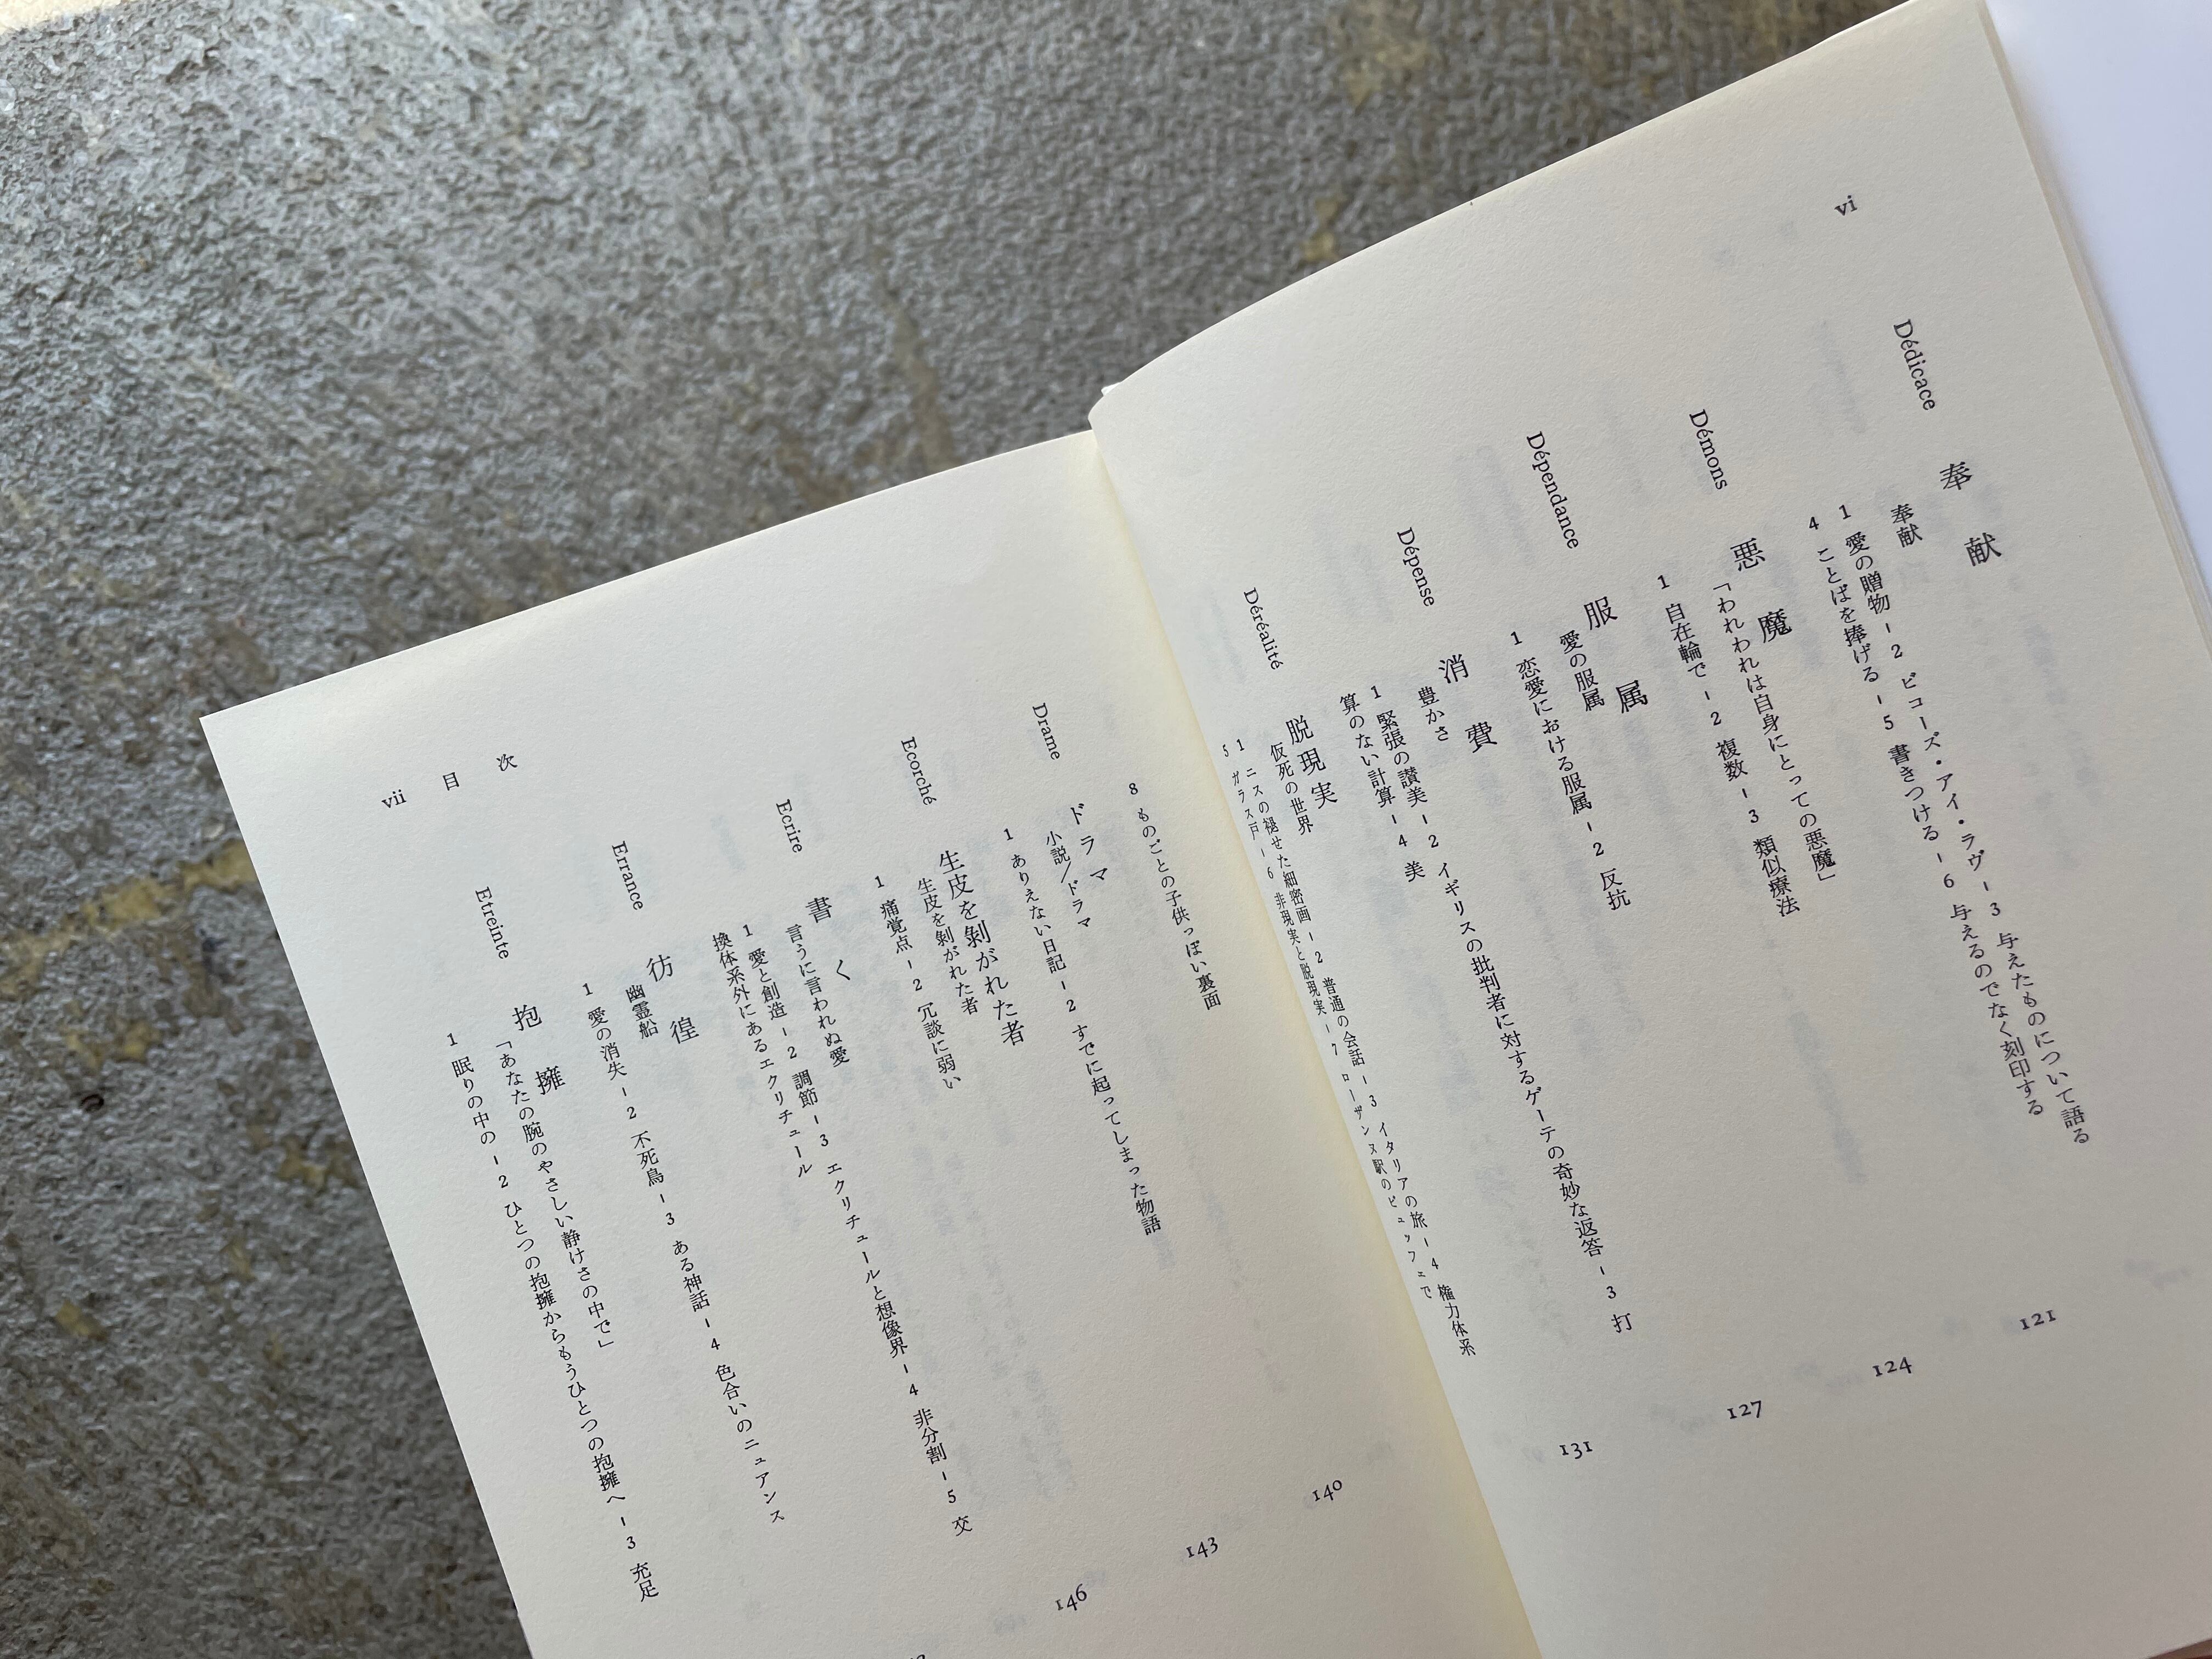 vi
Dédicace
奉献
121
奉献
1 愛の贈物－2 ビコーズ・アイ・ラヴ－3 与えたものについて語る
4 ことばを捧げる－5 書きつける－6 与えるのでなく刻印する
Démons
悪魔
124
「われわれは自身にとっての悪魔」
1 自在輪で－2 複数－3 類似療法
Dépendance
服属
127
愛の服属
1 恋愛における服属－2 反抗
Dépense
消費
131
豊かさ
1 緊張の讃美－2 イギリスの批判者に対するゲーテの奇妙な返答－3 打
算のない計算－4 美
Déréalité
脱現実
仮死の世界
1 ニスの褪せた細密画－2 普通の会話－3 イタリアの旅－4 権力体系
5 ガラス戸－6 非現実と脱現実－7 ローザンヌ駅のビュッフェで
8 ものごとの子供っぽい裏面
Drame
ドラマ
140
小説／ドラマ
1 ありえない日記－2 すでに起ってしまった物語
Ecorché
生皮を剝がれた者
143
生皮を剝がれた者
1 痛覚点－2 冗談に弱い
Ecrire
書く
146
言うに言われぬ愛
1 愛と創造－2 調節－3 エクリチュールと想像界－4 非分割－5 交
換体系外にあるエクリチュール
Errance
彷徨
幽霊船
1 愛の消失－2 不死鳥－3 ある神話－4 色合いのニュアンス
Etreinte
抱擁
「あなたの腕のやさしい静けさの中で」
1 眠りの中の－2 ひとつの抱擁からもうひとつの抱擁へ－3 充足
vii 目次